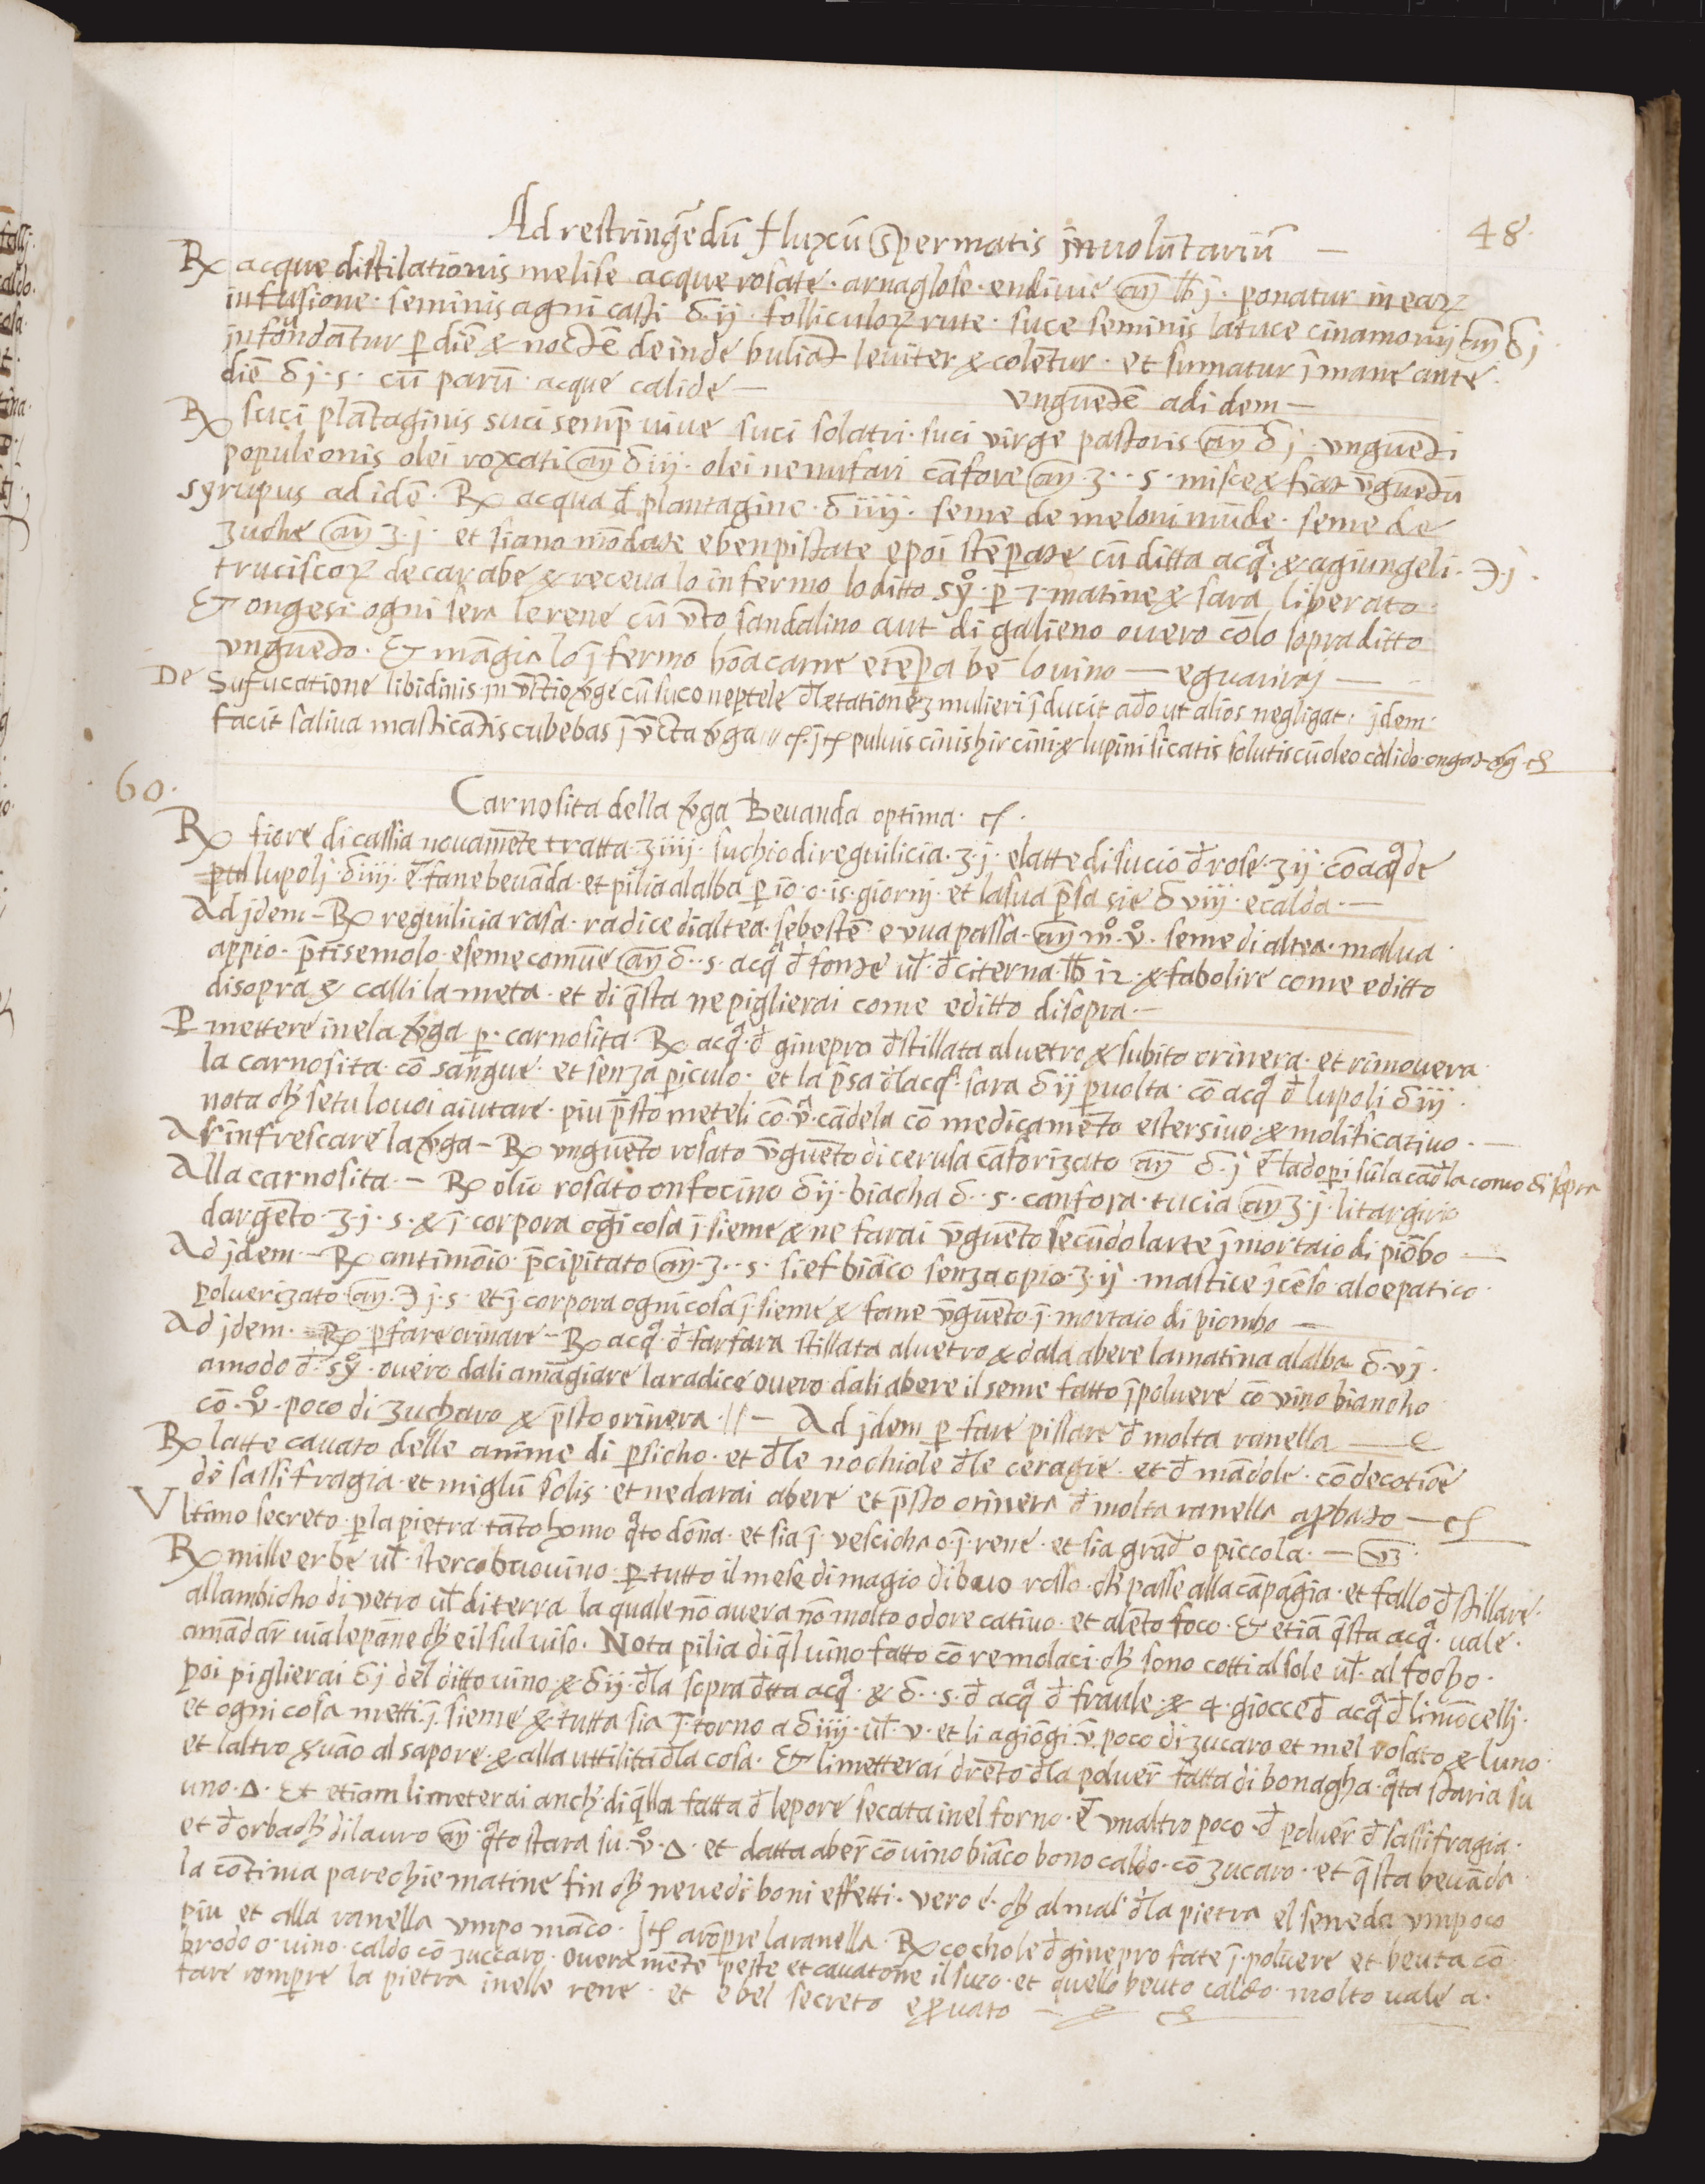 48.
Ad restringēdū fluxcū spermatis involūtariū —
℞ acque distilationis melise acque rosate · arnaglose · endivie an̄ ℔ j · ponatur in earꝝ
infusione · seminis agni casti ℥ ij · folliculoꝝ rute · suce seminis latuce cinamomij an̄ ℥ j
infondātur ꝑ diē & noctē deinde buliāt leviter & colētur · et sumatur ī mane ante ·
diē ℥ j · s · cū parū acque calide — unguētē ad idem —
℞ suci plātaginis suci semp̄ vive suci solatri · suci virge pastoris an̄ ℥ j · unguēti
populeonis olei roxati an̄ ℥ iij · olei nenufari cāfore an̄ · ʒ · s · misce & fiat ūguētū
syrupus ad idē · ℞ acqua đ plantagine · ℥ iiij · seme de meloni mūde · seme de
zuche an̄ ʒ · j · et siano mōdate e ben pistate e poi stēperate cū ditta acq̄ᵃ · & agiungeli · ℈ · j ·
truciscoꝝ de carabe & receva lo infermo lo ditto syº · ꝑ 7 matine & sara liberato ·
Et ongesi ogni sera le rene cū ūto sandalino aut di galieno overo cōlo sopraditto
unguēto · Et māgia lo īfermo bōa carne e tēpera bē lo vino — e guarira j —
De sufucatione libidinis · in ūctio v̄ge cū suco neptele đletationēʒ mulieri īducit ađo ut alios negligat · jdem ·
facit saliva masticātis cubebas ī ūcta v̄ga // ɞ · jt pulvis cinis hircini & lupini sicatis solutis cū oleo calido · ongat v̄g ·
60 ·
Carnosita della v̄ga Bevanda optima ·
℞ fiore di cassia novamēte tratta · ʒ iiij · suchio di regulicia · ʒ · j · elatte di sucio đ rose · ʒ ij · cō acq̄ᵃ de
lupolj · ℥ iiij · e fane bevāda · et pilia al alba ꝑ 10 · o · 15 · giornj · et la sua p̄sa sie ℥ viij · e calda · —
Ad jdem – ℞ regulicia rasa · radice di altea · sebestē e uva passa · an̄ mº · ūº · seme di altea · malva ·
appio · p̄tisemolo · e seme comūe an̄ ℥ · s · acq̄ᵃ đ fonte ul̄ · đ citerna · ℔ 12 · & fa bolire come e ditto
di sopra & calli la meta · et di q̄sta ne piglierai come e ditto di sopra · —
ꝑ mettere inela v̄ga ꝑ · carnosita · ℞ acq̄ᵃ · đ ginepro đstillata al vetro & subito orinera · et rimovera ·
la carnosita · cō sangue · et senza ꝑiculo · et la p̄sa đlacq̄ᵃ · sara ℥ ij ꝑ volta · cō acq̄ᵃ đ lupoli ℥ iij ·
nota ch̄ se tu lo voi aiutare · piu p̄sto meteli cō · ūᵃ · cādela cō medicamēto estersivo · & molificativo · —
A rinfrescare la v̄ga – ℞ unguēto rosato ūguēto di cerusa cāforizato an̄ ℥ · j e lađoꝑi sula cāđla como di sopra
Alla carnosita · – ℞ olio rosato onfocino ℥ ij · biacha ℥ · s · canfora · tucia an̄ ʒ · j · litargirio
dargēto · ʒ · j · s · & ī corpora ogi cosa ī sieme & ne farai ūguēto secūdo larte ī mortaio di piōbo —
Ad jdem · – ℞ antimōio · p̄cipitato an̄ · ʒ · s · sief biāco senza opio · ʒ · ij · mastice īcēso · aloepatico ·
polverizato an̄ · ℈ j · s · et ī corpora ogni cosa ī · sieme & fane ūguēto · ī · mortaio di piombo —
Ad jdem · ꝑ fare orinare – ℞ acq̄ᵃ · đ farfara stillata al vetro & dala a bere la matina al alba ℥ · vj ·
a modo đ · syº · overo dali a māgiare la radice overo dali a bere il seme fatto ī polvere cō vino biancho
cō · ūº · poco di zucharo & p̄sto orinera · // — Ad jdem ꝑ fare pissare đ molta ranella —
℞ latte cavato delle anime di ꝑsicho · et đle nochiole đle ceragie · et đ mādole · cō decotiōe
de sassifragia · et miglū solis · et ne darai a bere et p̄sto orinera đ molta ranella aꝓbato —
Ultimo secreto · ꝑ la pietra · tāto homo q̄to dōna · et sia ī · vescicha o · ī · rene · et sia grāđ o piccola · —
℞ mille erbe ul̄ · sterco bovuino · ꝑ tutto il mese di magio di bovo rosso · ch̄ passe alla cāpagīa · et fallo đstillare ·
allambicho di vetro ul̄ di terra la quale nō avera nō molto odore cativo · et a lēto foco · Et etiā q̄sta acq̄ᵃ · vale ·
a mādar̄ via le pāne ch̄ e il sul viso · Nota pilia di q̄l vino fatto cō remolaci · ch̄ sono cotti al sole ul̄ · al focho ·
poi piglierai ℥ j del ditto vino & ℥ ij · đla sopra đtta acq̄ᵃ · & ℥ · s · đ acq̄ᵃ đ fraule · & 4 · giocce đ acq̄ᵃ đ limōcelli ·
et ogni cosa metti · ī · sieme & tutta sia ī torno a ℥ iiij · ul̄ · v · et li agiōgi · ū · poco di zucaro et mel rosato & luno ·
et laltro & vāo al sapore · & alla uttilita đla cosa · Et li metterai drēto đla polver̄ fatta di bonagha · q̄ta staria su
uno · Δ · Et etiam li meterai anch̄ · di q̄lla fatta đ lepore secata inel forno · e unaltro poco · đ polver̄ đ sassifragia ·
et đ orbach̄ di lauro an̄ q̄to stara su · ūº · Δ · et datta a ber̄ cō vino biāco bono caldo · cō zucaro · et q̄sta bevāda ·
la cōtinua parechie matine fin ch̄ ne vedi boni effetti · vero e · ch̄ al mal đla pietra el se neda umpoco
piu et alla ranella umpo māco · Jt a rōꝑe la ranella · ℞ cochole đ ginepro fate ī · polvere et beuta cō
brodo o · vino · caldo cō zuccaro · overamēte peste et cavatone il suco · et quello beuto caldo · molto vale a ·
fare romꝑe la pietra inelle rene · et e bel secreto e ꝓvato —